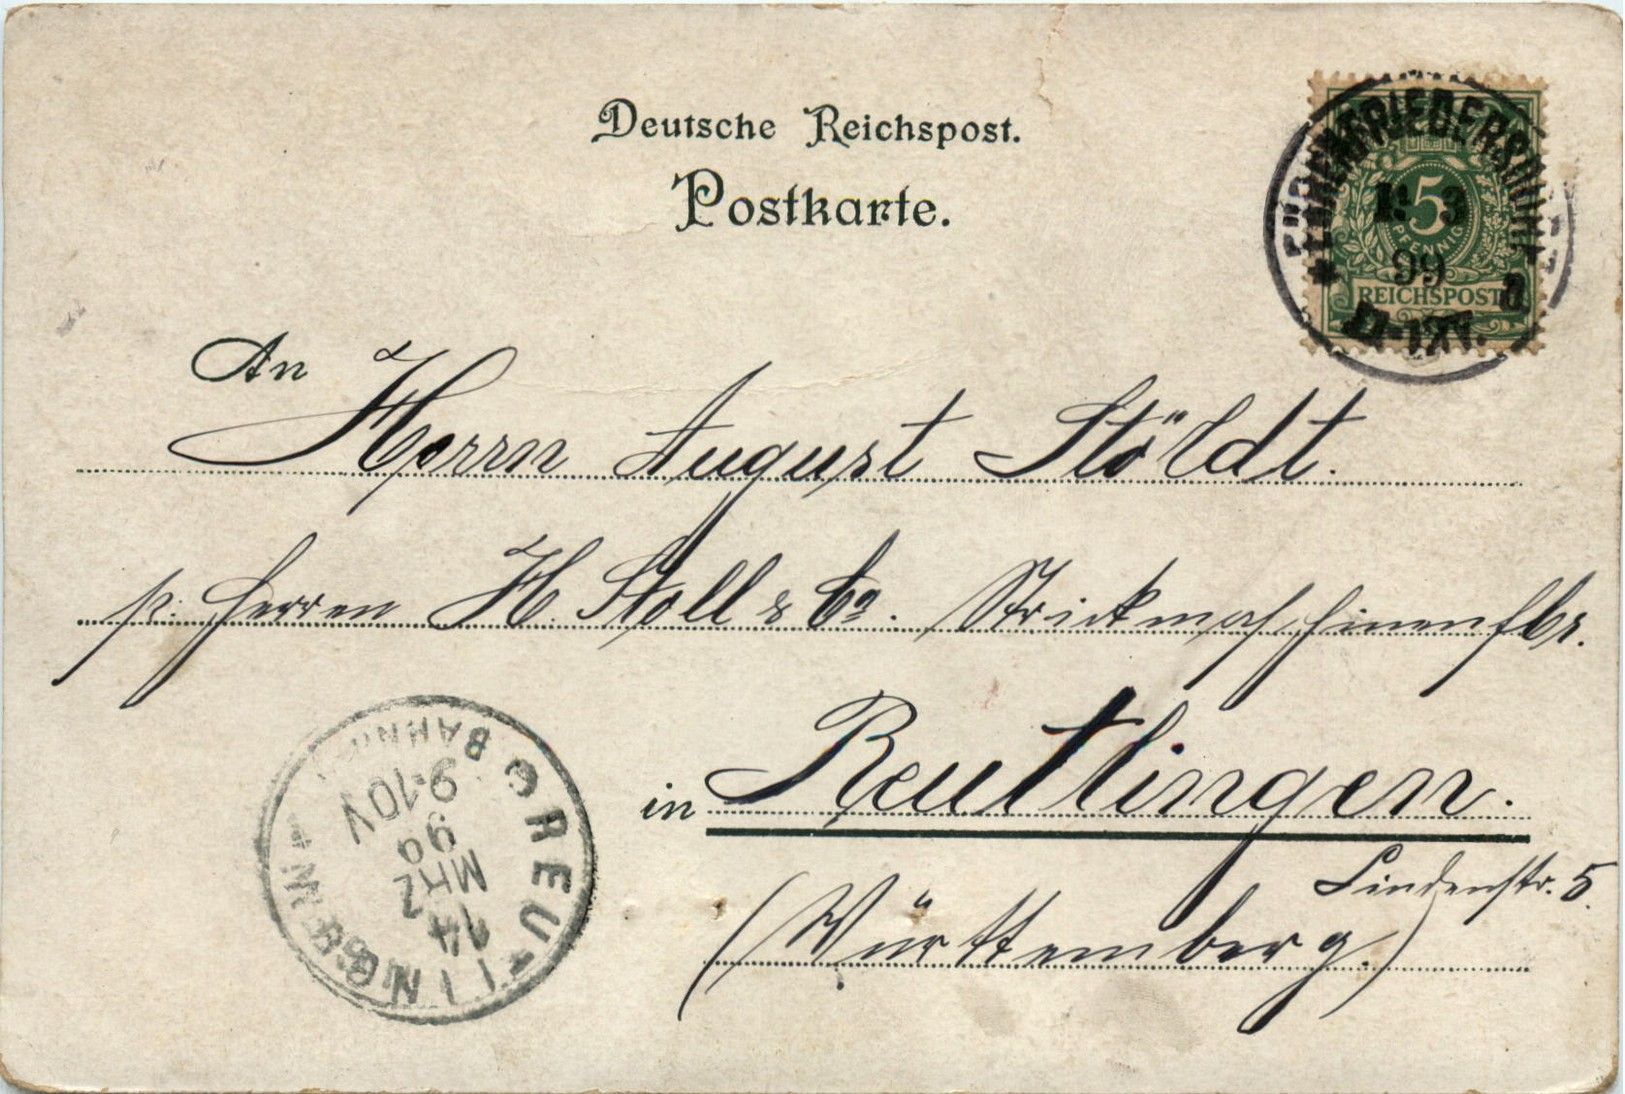 Deutsche Reichspost.
Postkarte.
5
PFENNIG
REICHSPOST
99
An Herrn August Stöldt.
p. Herren H. Stoll & Co. Strickmaschinenfbr.
in Reutlingen.
Lindenstr. 5.
(Württemberg.)
REUTLINGEN
BAHNH
14
MRZ
99
9-10V